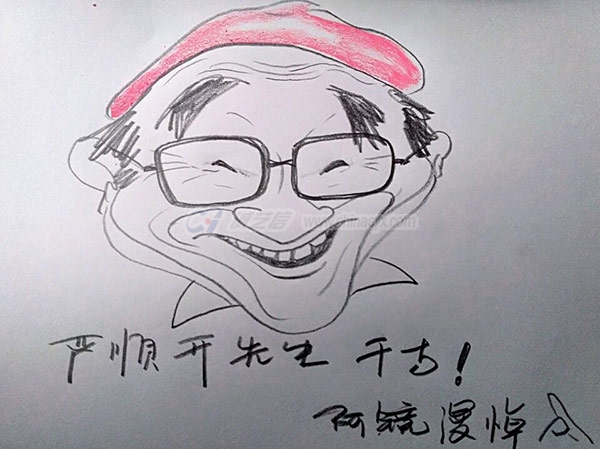 严顺开先生千古！
阿毓漫悼